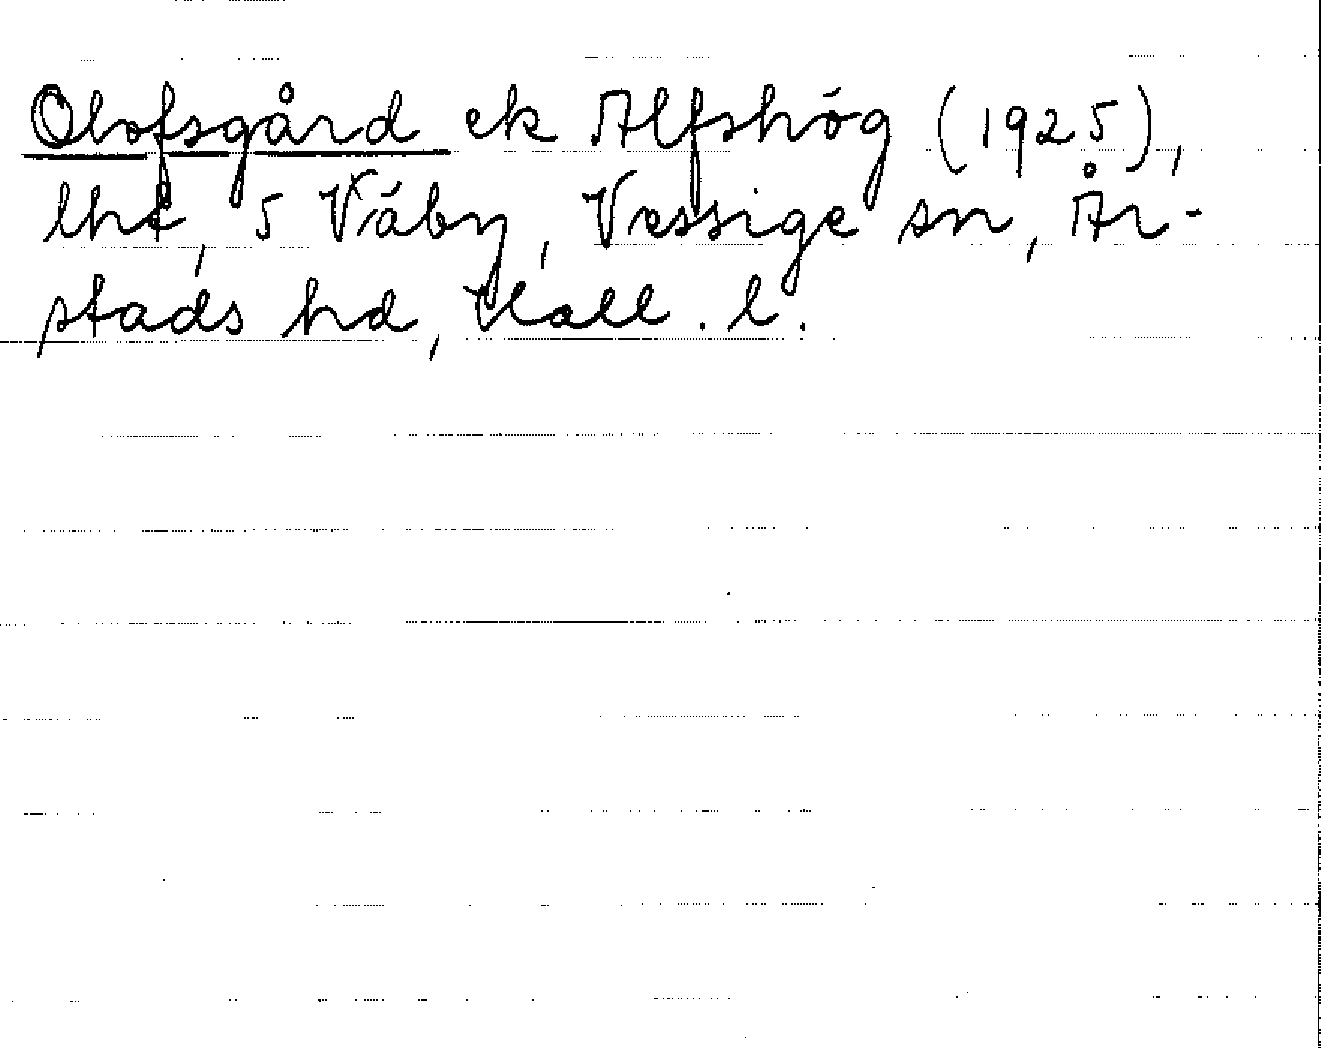 Olofsgård ek Alfshög (1925),
lht, 5 Väby, Vessige sn, År-
stads hd, Hall. l.